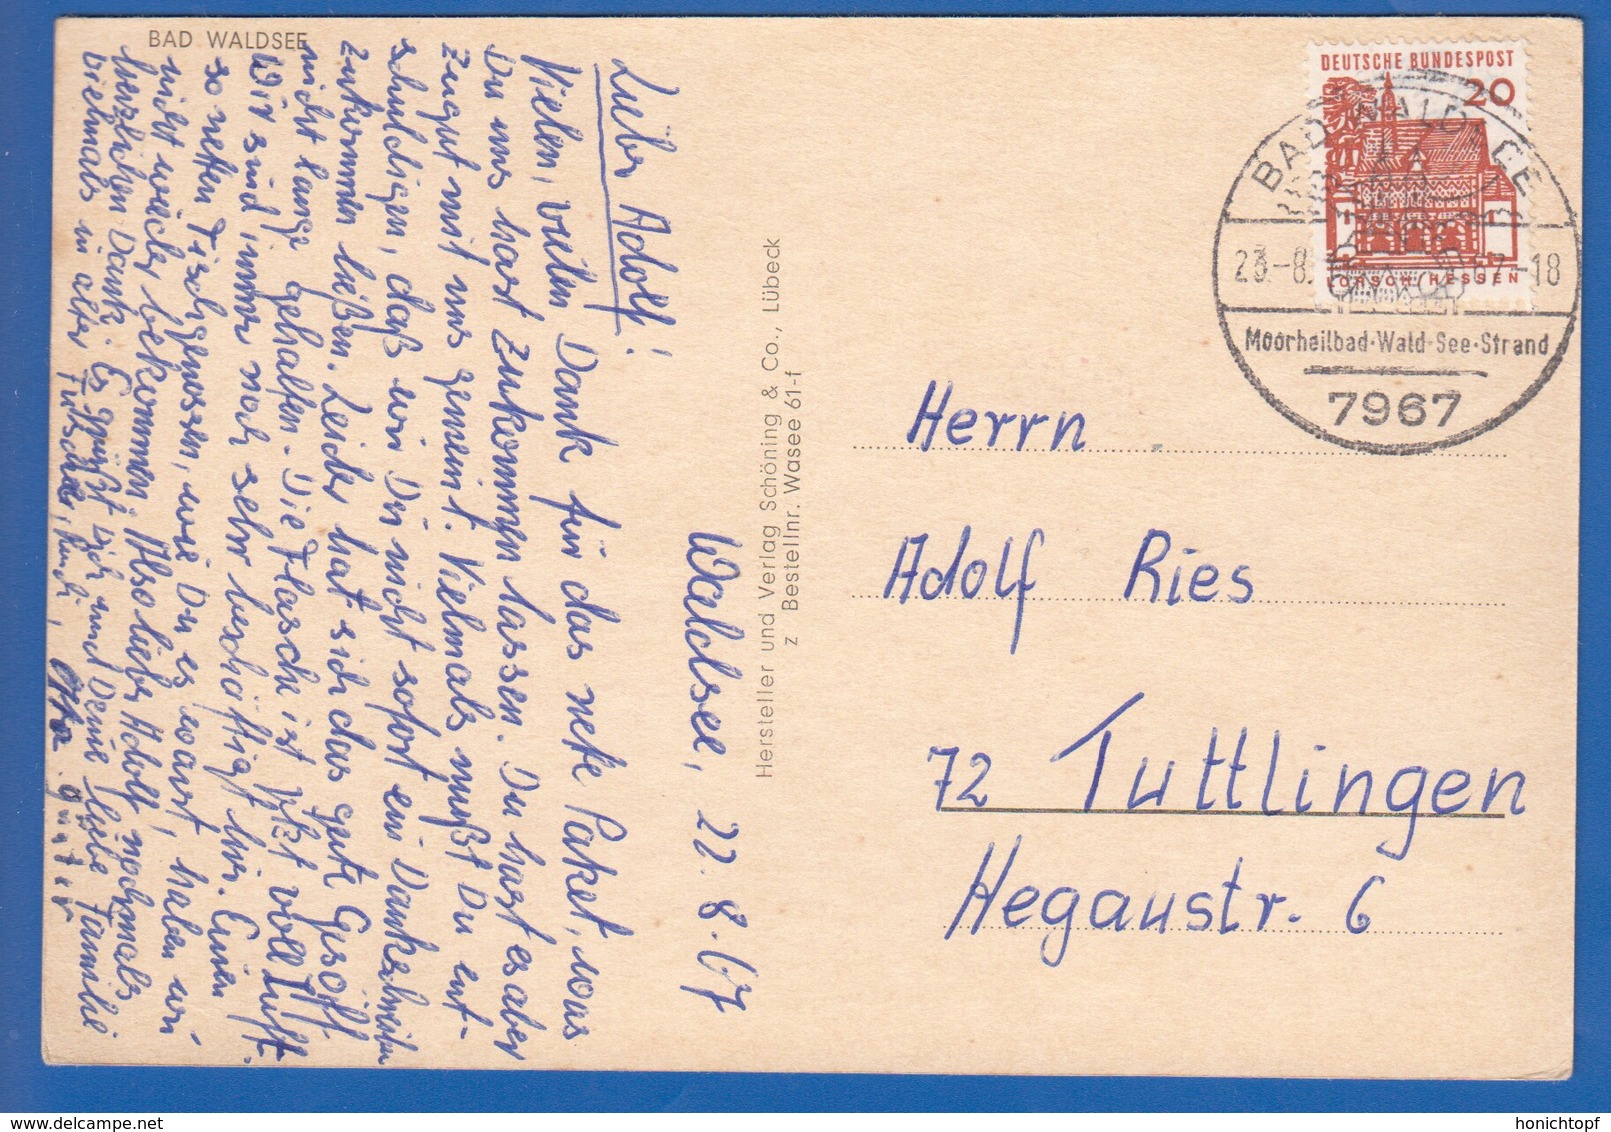 BAD WALDSEE
Waldsee, 22.8.67
Lieber Adolf!
Vielen, vielen Dank für das nette Paket, was
Du uns hast zukommen lassen. Du hast es aber
zu gut mit uns gemeint. Vielmals mußt Du ent-
schuldigen, daß wir Dir nicht sofort ein Dankschreiben
zukommen ließen. Leider hat sich das gute Gesöff
nicht lange gehalten. Die Flasche ist jetzt voll Luft.
Wir sind immer noch sehr beschäftigt hier. Einen
so netten Tischgenossen, wie Du es warst, haben wir
nicht wieder bekommen. Also lieber Adolf nochmals
herzlichen Dank. Es grüßt Dich und Deine liebe Familie
vielmals in alter
Hersteller und Verlag Schöning & Co., Lübeck
z Bestellnr. Wasee 61-f
DEUTSCHE BUNDESPOST
20
LORSCH/HESSEN
BAD WALDSEE
23.-8.67-18
Moorheilbad·Wald·See·Strand
7967
Herrn
Adolf Ries
72 Tuttlingen
Hegaustr. 6
www.delcampe.net
honichtopf